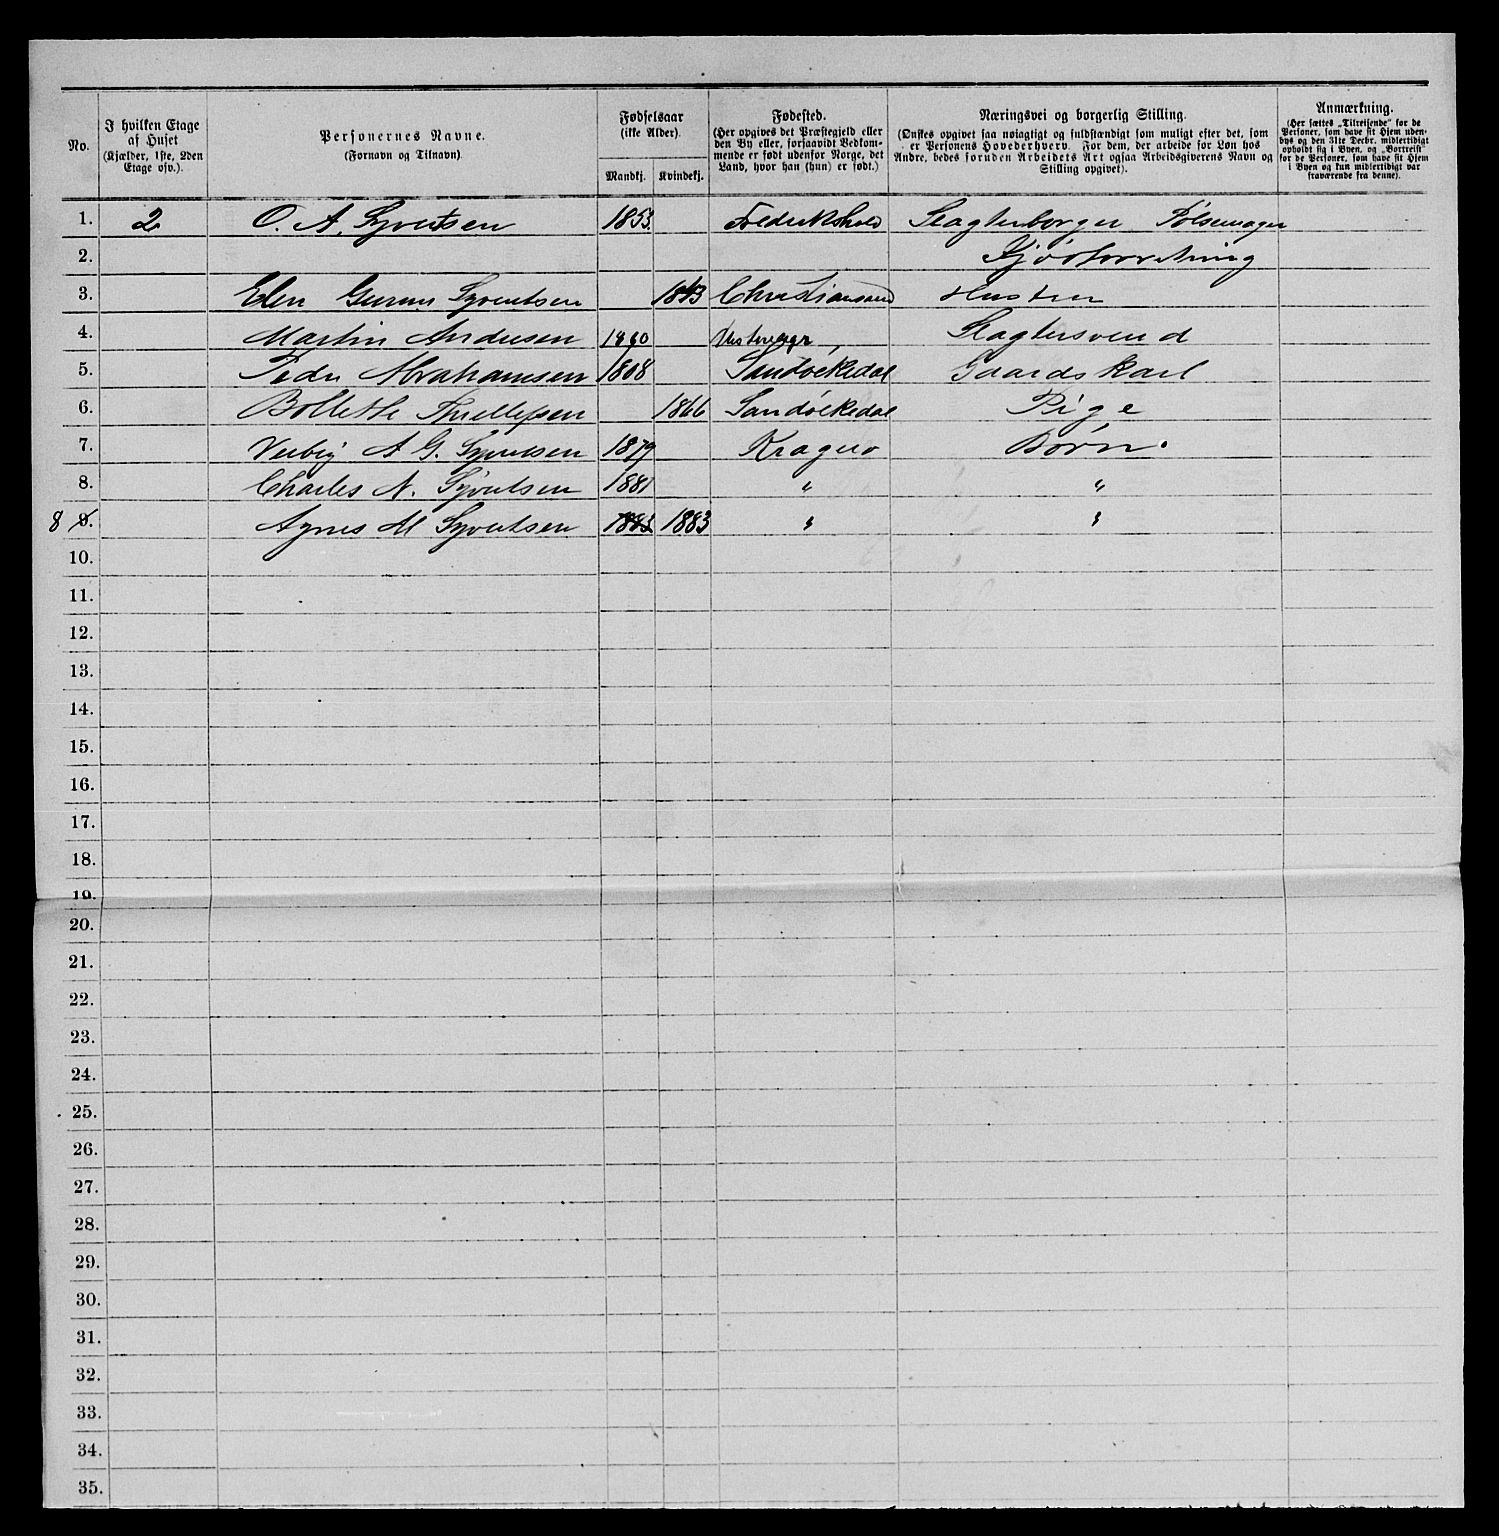 No.
I hvilken Etage af Huset (Kjælder, 1ste, 2den Etage osv.).
Personernes Navne. (Fornavn og Tilnavn)
Fødselsaar (ikke Alder).
Mandkj. Kvindekj.
Fødested. (Her opgives det Præstegjeld eller den By eller, forsaavidt Vedkommende er født udenfor Norge, det Land, hvor han (hun) er født.)
Næringsvei og borgerlig Stilling. (Ønskes opgivet saa nøiagtigt og fuldstændigt som muligt efter det, som er Personens Hovederhverv. For dem, der arbeide for Løn hos Andre, bedes foruden Arbeidets Art ogsaa Arbeidsgiverens Navn og Stilling opgivet).
Anmærkning. (Her sættes „Tilreisende" for de Personer, som have sit Hjem udenbys og den 31te Decbr. midlertidigt opholdt sig i Byen, og „Bortreist" for de Personer, som have sit Hjem i Byen og kun midlertidigt var fraværende fra denne).
1. 2 O. A. Syvertsen 1853. Fredrikshald Slagterborger Pølsemager
2. Kjødforretning
3. Elen Syvertsen 1843 Christiansand Hustru
4. Martin Andersen 1860 Slagtersvend
5. Peder Abrahamsen 1808 Sandøkedal Gaardskarl
6. Bollette 1866 Sandøkedal Pige
7. A G. Syvertsen 1879 Kragerø Børn.
8. Charles N. Syvertsen 1881 " "
8 9. Agnes M Syvertsen 1883 1883 " "
10.
11.
12.
13.
14.
15.
16.
17.
18.
19.
20.
21.
22.
23.
24.
25.
26.
27.
28.
29.
30.
31.
32.
33.
34.
35.